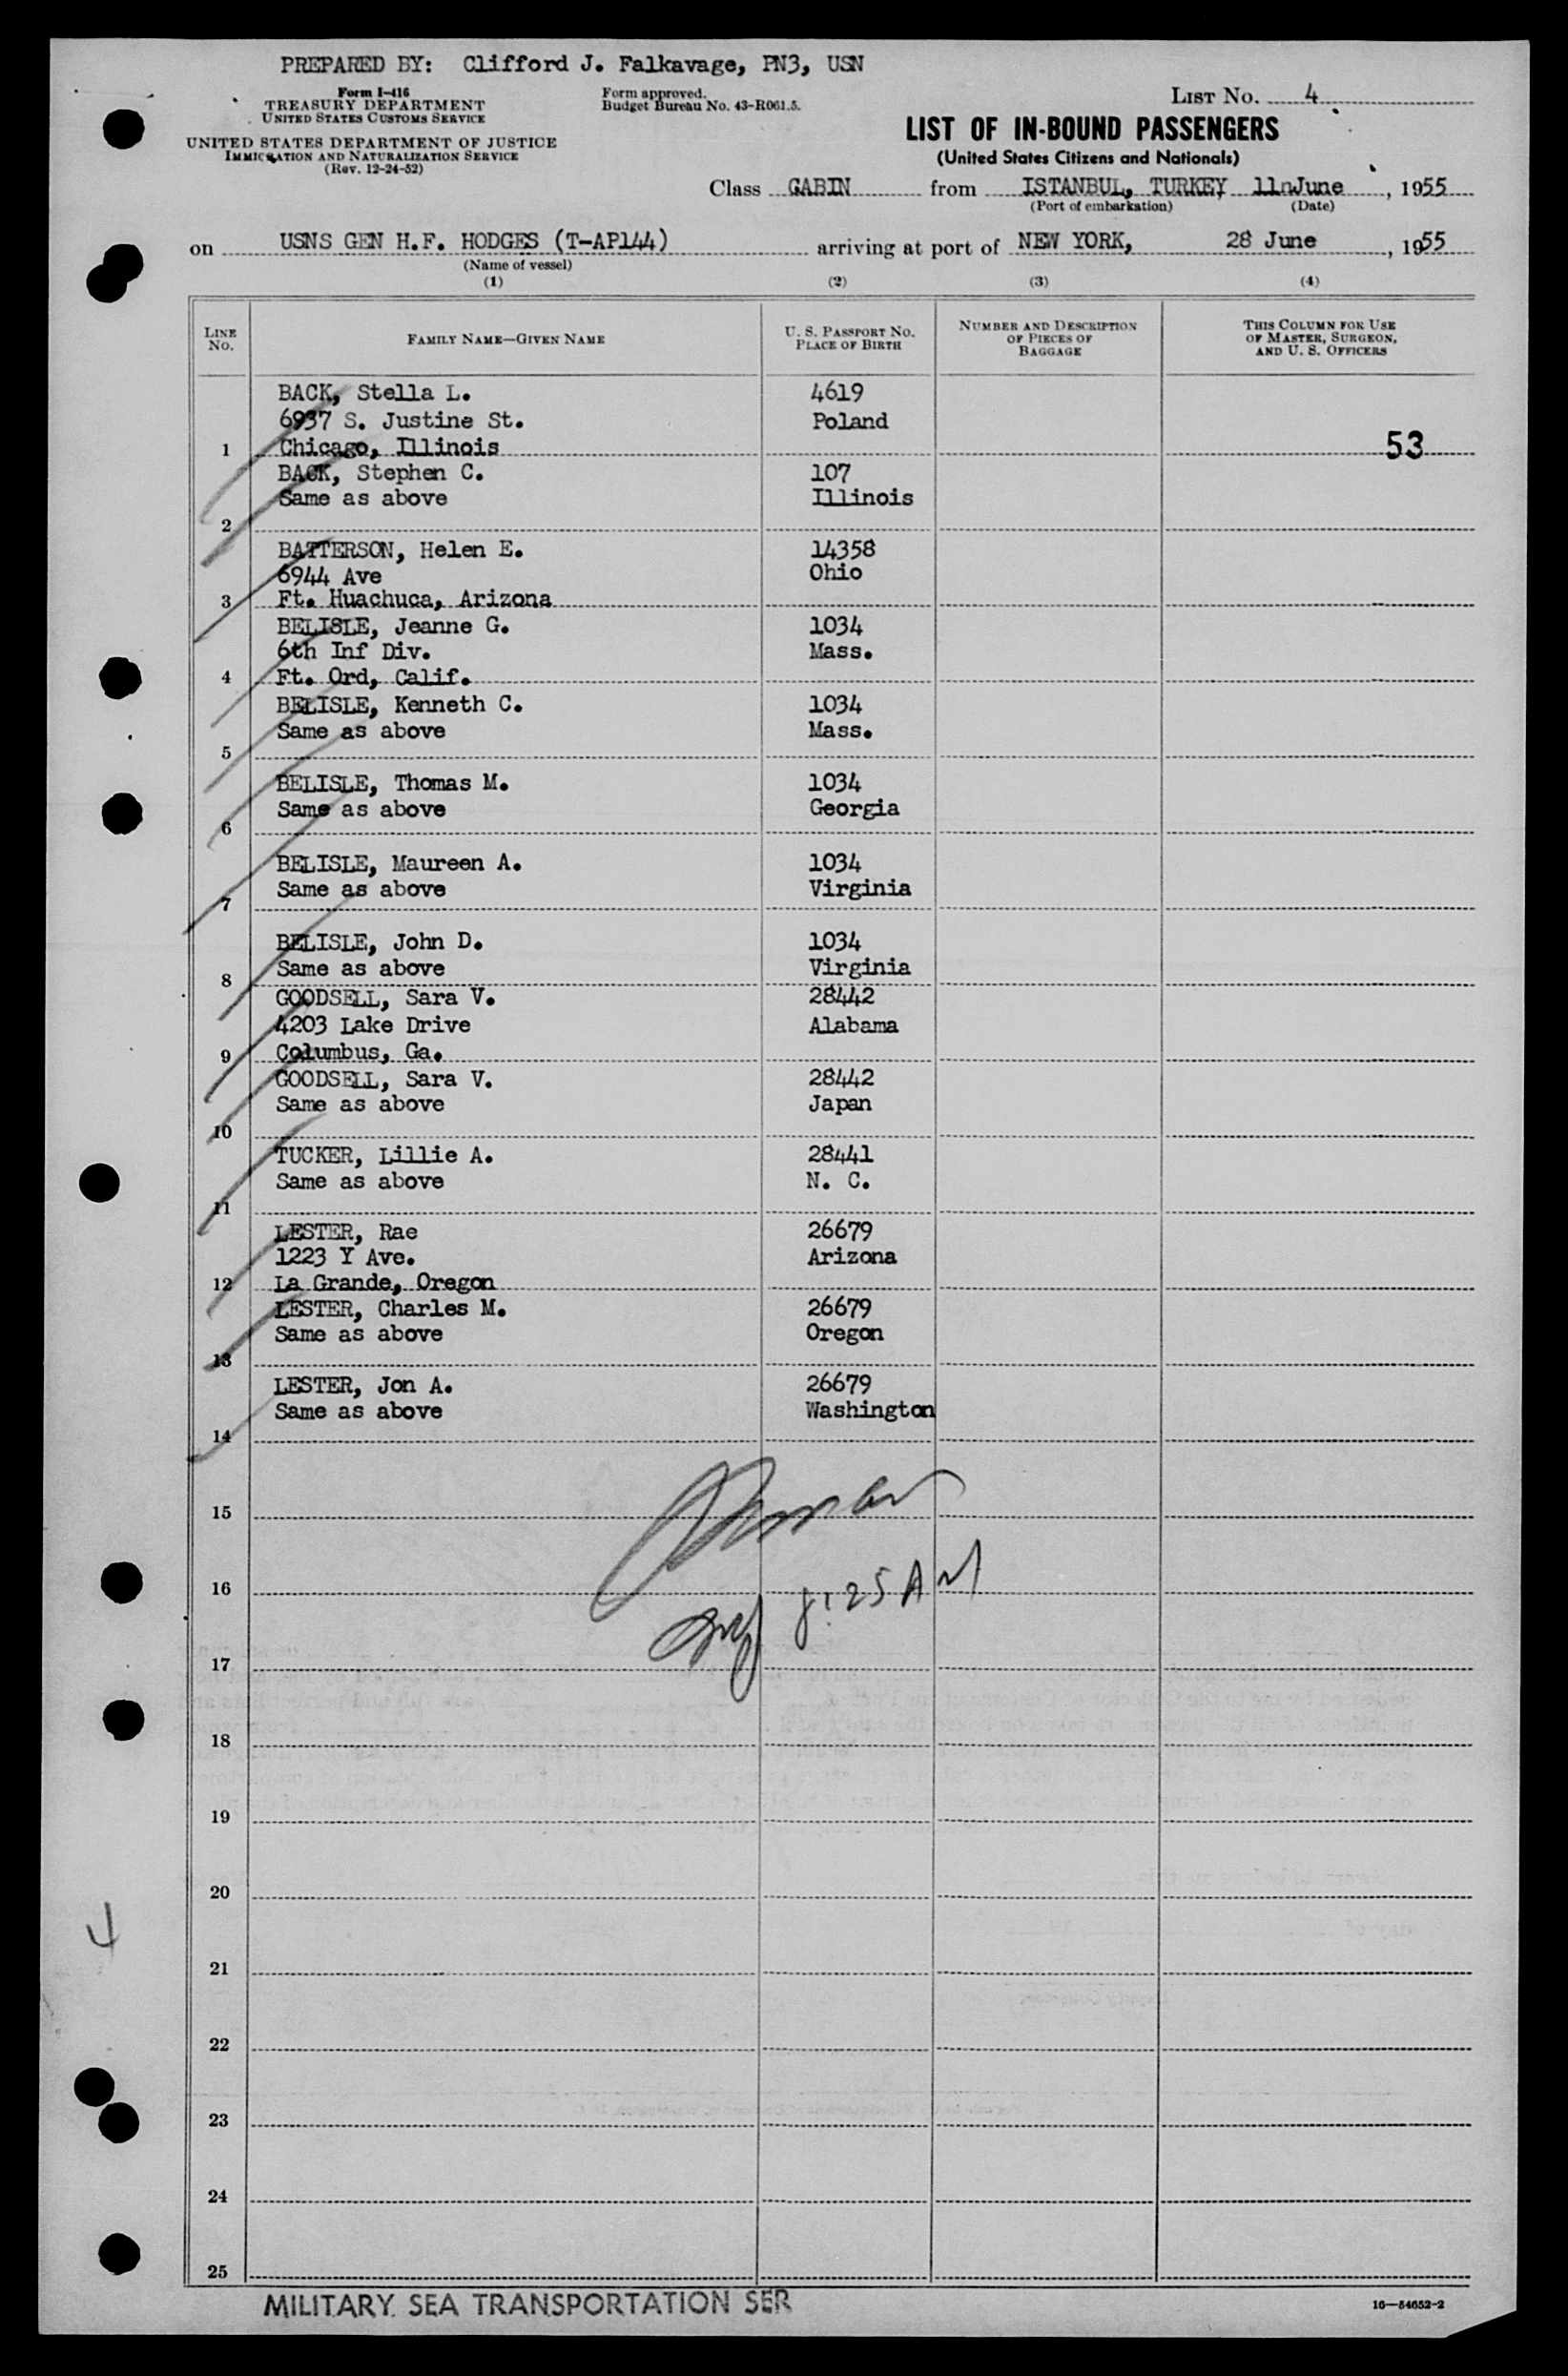 PREPARED BY: Clifford J. Falkavage, PN3, USN
Form I-416
TREASURY DEPARTMENT
UNITED STATES CUSTOMS SERVICE
Form approved.
Budget Bureau No. 43-R061.5.
LIST NO. 4
UNITED STATES DEPARTMENT OF JUSTICE
IMMIGRATION AND NATURALIZATION SERVICE
(Rev. 12-24-52)
LIST OF IN-BOUND PASSENGERS
(United States Citizens and Nationals)
Class CABIN from ISTANBUL, TURKEY 11 June, 1955
(Port of embarkation) (Date)
on USNS GEN H.F. HODGES (T-AP144) arriving at port of NEW YORK, 28 June, 1955
(Name of vessel)
(1) (2) (3) (4)
LINE NO. FAMILY NAME—GIVEN NAME U. S. PASSPORT NO. PLACE OF BIRTH NUMBER AND DESCRIPTION OF PIECES OF BAGGAGE THIS COLUMN FOR USE OF MASTER, SURGEON, AND U. S. OFFICERS
BACK, Stella L. 4619
6937 S. Justine St. Poland
1 Chicago, Illinois 53
BACK, Stephen C. 107
Same as above Illinois
2
BATTERSON, Helen E. 14358
6944 Ave Ohio
3 Ft. Huachuca, Arizona
BELISLE, Jeanne G. 1034
6th Inf Div. Mass.
4 Ft. Ord, Calif.
BELISLE, Kenneth C. 1034
Same as above Mass.
5
BELISLE, Thomas M. 1034
Same as above Georgia
6
BELISLE, Maureen A. 1034
Same as above Virginia
7
BELISLE, John D. 1034
Same as above Virginia
8
GOODSELL, Sara V. 28442
4203 Lake Drive Alabama
9 Columbus, Ga.
GOODSELL, Sara V. 28442
Same as above Japan
10
TUCKER, Lillie A. 28441
Same as above N. C.
11
LESTER, Rae 26679
1223 Y Ave. Arizona
12 La Grande, Oregon
LESTER, Charles M. 26679
Same as above Oregon
13
LESTER, Jon A. 26679
Same as above Washington
14
15
16
8:25 AM
17
18
19
20
4
21
22
23
24
25
MILITARY SEA TRANSPORTATION SER
16—54652-2